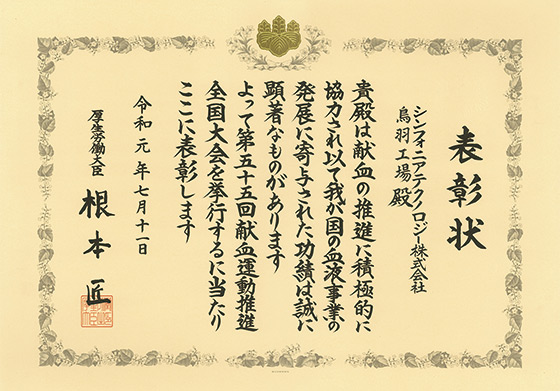 表彰状
シンフォニアテクノロジー株式会社
鳥羽工場殿
貴殿は献血の推進に積極的に
協力され以て我が国の血液事業の
発展に寄与された功績は誠に
顕著なものがあります
よって第五十五回献血運動推進
全国大会を挙行するに当たり
ここに表彰します
令和元年七月十一日
厚生労働大臣
根本匠